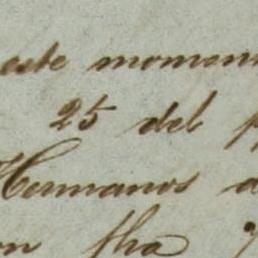 este momen
25 del p
Hermanos d
on fha